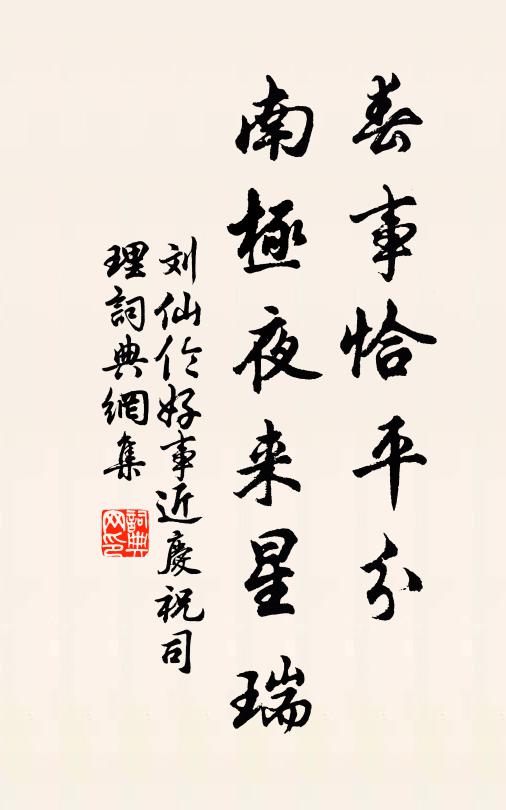 春事恰平分
南極夜来星瑞
刘仙伦好事近慶祝司
理詞典網集
詞典
网印